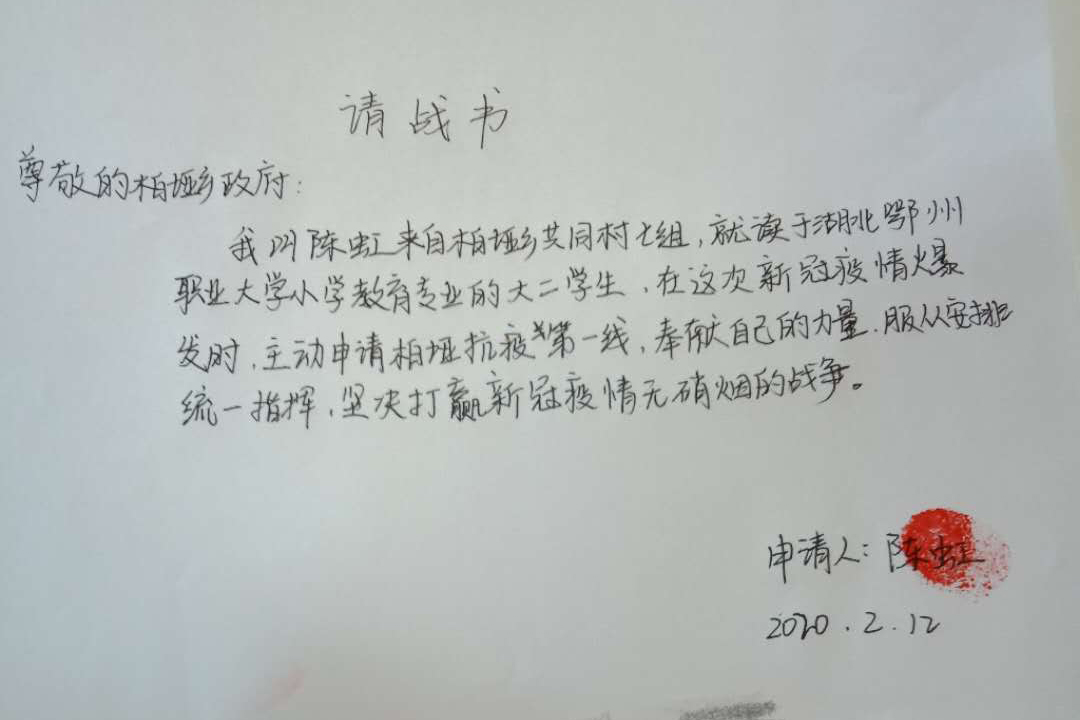 请战书
尊敬的柏垭乡政府:
我叫陈虹来自柏垭乡共同村七组,就读于湖北鄂州
职业大学小学教育专业的大二学生,在这次新冠疫情爆
发时,主动申请柏垭抗疫第一线,奉献自己的力量.服从安排
统一指挥,坚决打赢新冠疫情无硝烟的战争。
申请人:陈虹
2020.2.12